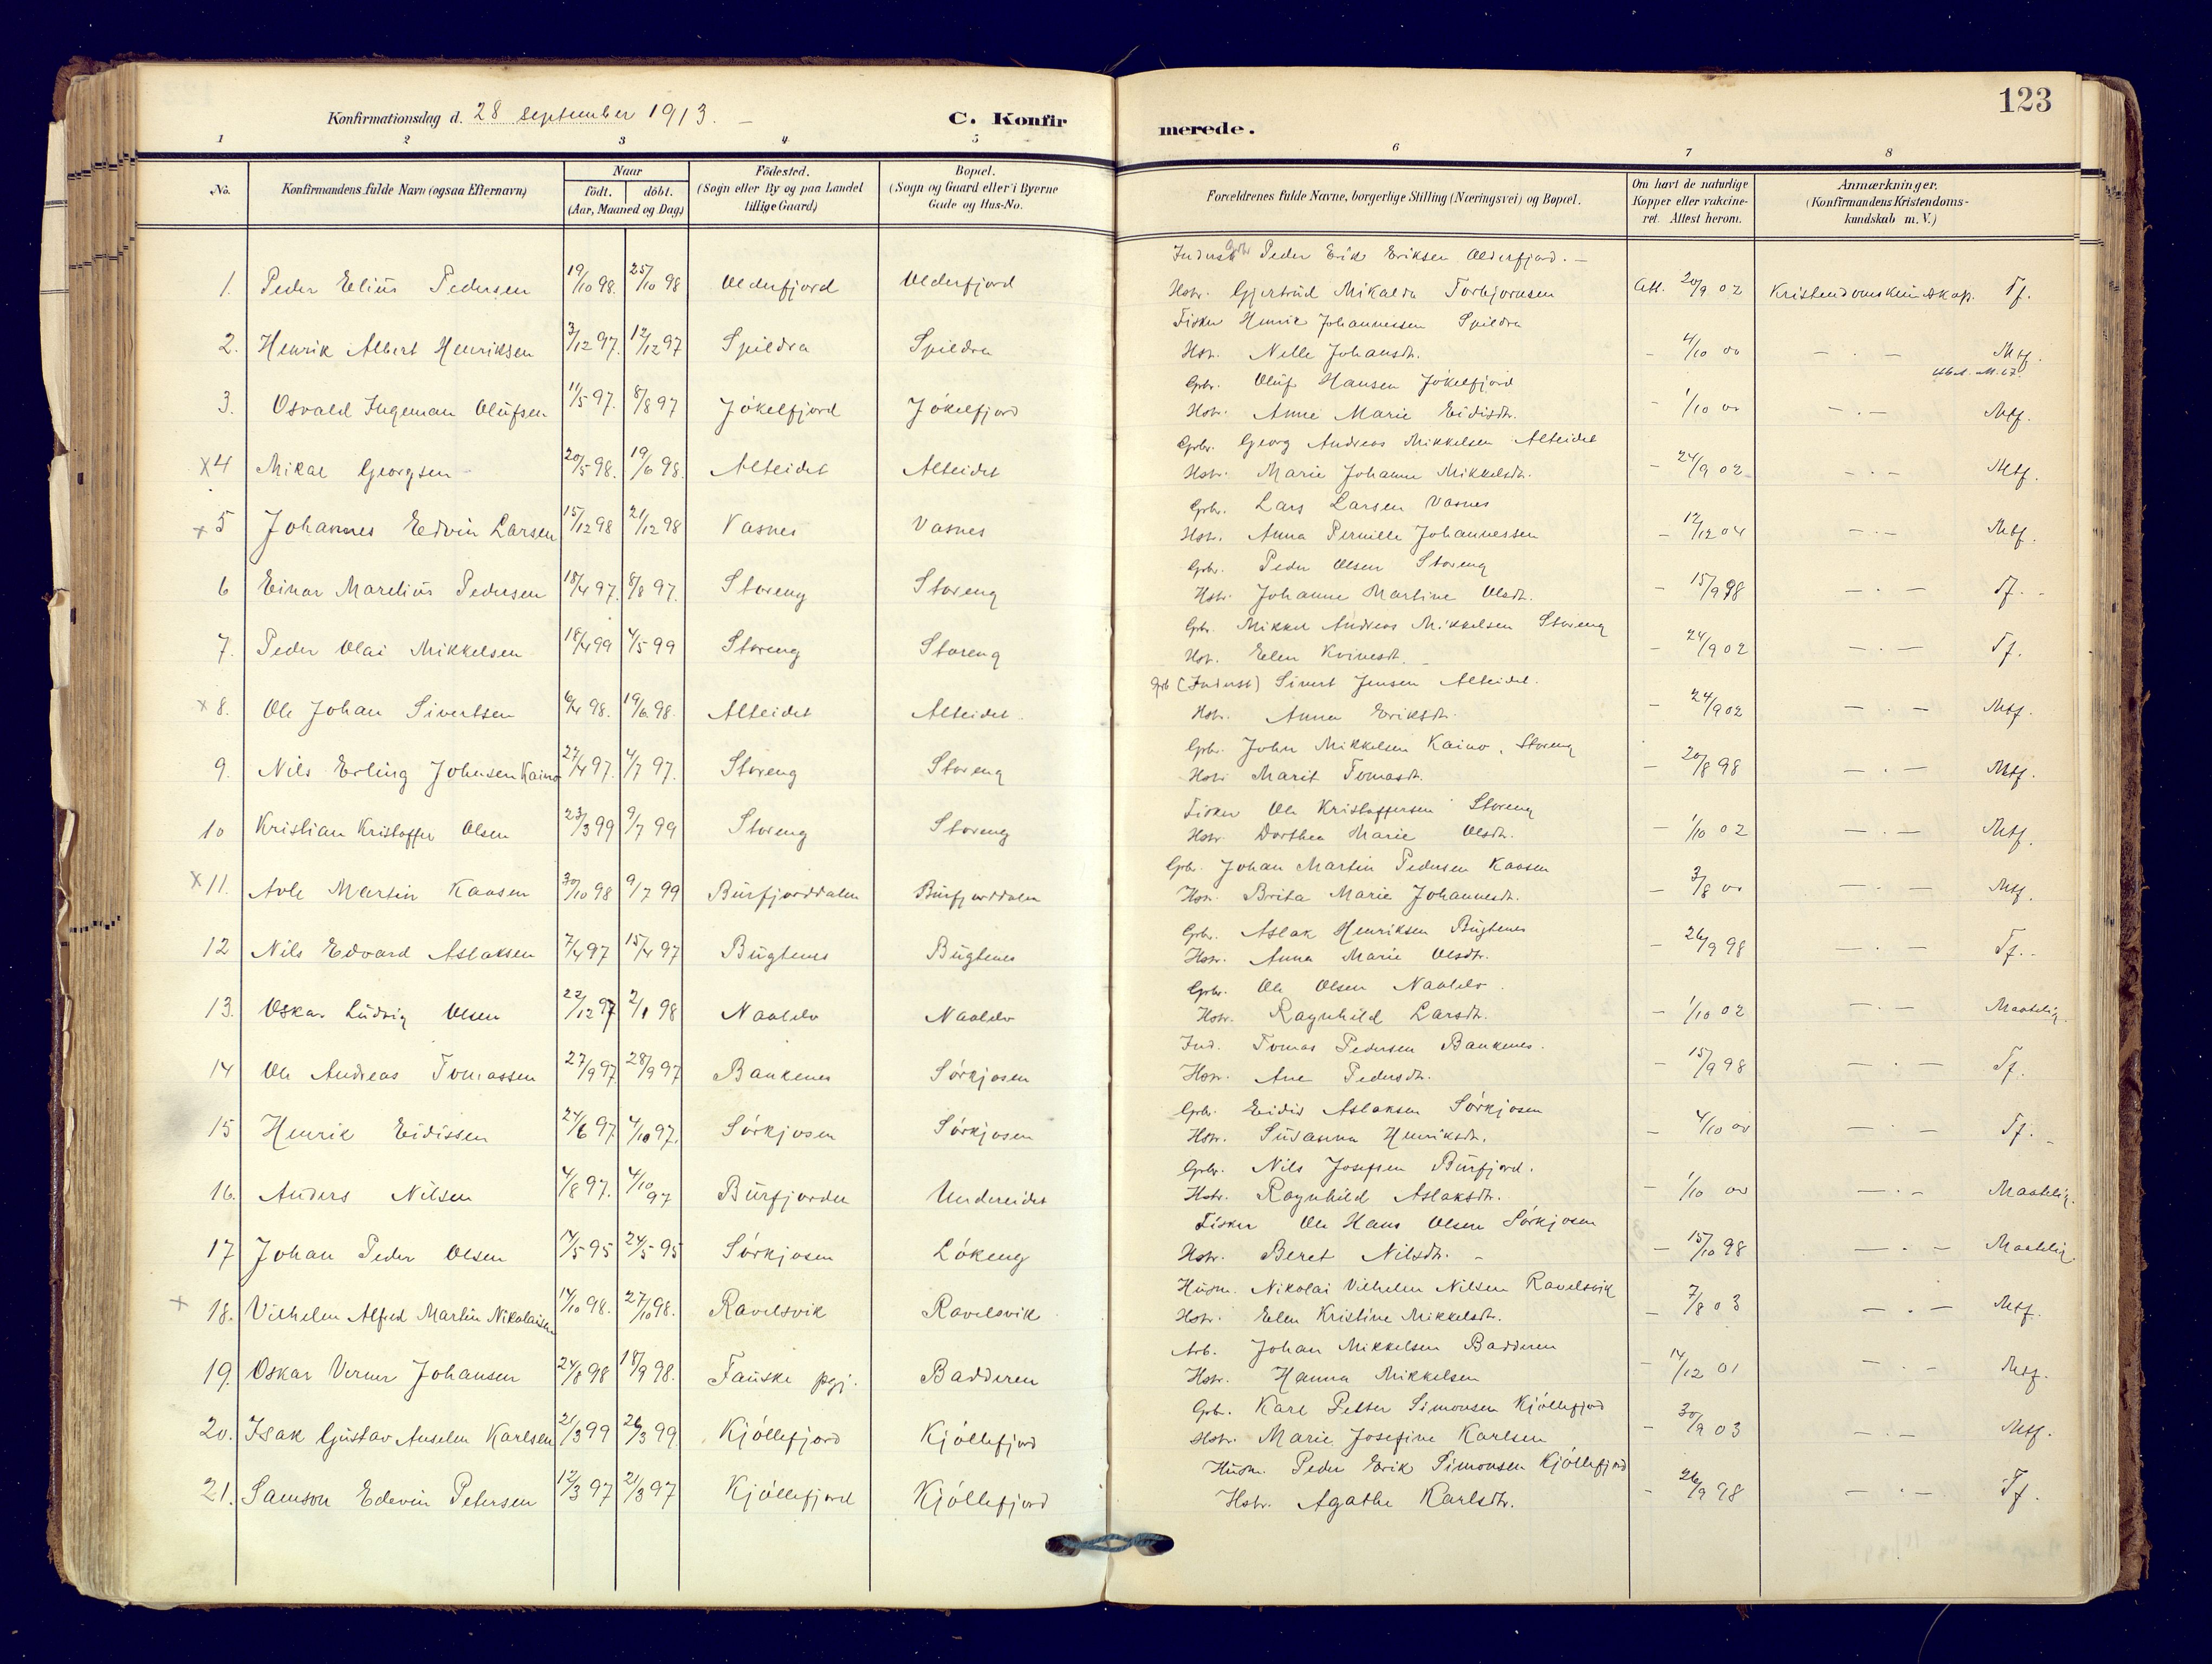 123
Konfirmationsdag d. 28 september 1913. C. Konfirmerede.
1 2 3 4 5 6 7 8
No. Konfirmandens fulde Navn (ogsaa Efternavn) Naar födt. döbt. (Aar, Maaned og Dag) Födested. (Sogn eller By og paa Landet tillige Gaard) Bopæl. (Sogn og Gaard eller i Byerne Gade og Hus-No. Forældrenes fulde Navne, borgerlige Stilling (Næringsvei) og Bopæl. Om havt de naturlige Kopper eller vakcineret. Attest herom. Anmærkninger. (Konfirmandens Kristendomskundskab m. V.)
Inderst Peder Erik Eriksen Olderfjord. —
1. Peder Eliüs Pedersen 19/10 98. 25/10 98 Olderfjord Olderfjord Hstr. Gjertrüd Mikalda Torbjornsen Att. 20/9 02 Kristendomskündskap. Tf.
Fisker Henrik Johannessen Spildra
2. Henrik Albert Henriksen 3/12 97. 12/12 97 Spildra Spildra Hstr. Nelle Johansdtr. — 4/10 00 — . — Mtf.
Grbr. Olüf Hansen Jökelfjord
3. Osvald Ingeman Olüfsen 11/5 97. 8/8 97 Jökelfjord Jökelfjord Hstr. Anne Marie Eidisdtr. — 1/10 00 — . — Mtf.
Grbr. Georg Andreas Mikkelsen Alteidet
x4 Mikal Georgsen 20/5 98. 19/6 98. Alteidet Alteidet Hstr. Marie Johanne Mikkelsdtr. — 24/9 02 — . — Mtf.
Grbr. Lars Larsen Vasnes
x5 Johannes Edvin Larsen 15/12 98 21/12 98 Vasnes Vasnes Hstr. Anna Pernille Johannessen — 12/12 04 — . — Mtf.
Grbr. Peder Olsen Storeng
6 Einar Mareliüs Pedersen 18/4 97. 8/8 97. Storeng Storeng Hstr. Johanne Martine Olsdtr. — 15/9 98 — . — Tf.
Grbr. Mikkel Andreas Mikkelsen Storeng
7. Peder Olai Mikkelsen 18/4 99 4/5 99 Storeng Storeng Hstr. Elen Kvinesdt. — 24/9 02 — . — Tf.
Grb (Inderst) Sivert Jensen Alteidet.
x8. Ole Johan Sivertsen 6/4 98. 19/6 98. Alteidet Alteidet. Hstr. Anna Eriksdtr. — 24/9 02 — . — Mtf.
Grbr. John Mikkelsen Kaino, Storeng
9. Nils Erling Johnsen Kaino 27/4 97. 4/7 97. Storeng Storeng Hstr Marit Tomasdt. — 20/8 98 — . — Mtf.
Fisker Ole Kristoffersen Storeng
10 Kristian Kristoffer Olsen 23/3 99 9/7 99 Storeng Storeng Hstr. Dorthea Marie Olsdtr. — 1/10 02 — . — Mtf.
Grb. Johan Martin Pedersen Kaasen
x11. Avle Martin Kaasen 30/10 98 9/7 99 Bürfjorddalen Bürfjorddalen Hstr. Brita Marie Johannesdt. — 3/8 00 — . — Mtf.
Grbr. Aslak Henriksen Bügtenes
12 Nils Edvard Aslaksen 7/4 97 15/4 97 Bügtenes Bügtenes Hstr. Anna Marie Olsdtr. — 26/9 98 — . — Tf.
Grbr. Ole Olsen Naalelv.
13. Oskar Lüdvig Olsen 22/12 97 2/1 98 Naalelv Naalelv Hstr. Ragnhild Larsdtr. — 1/10 02 — . — Maatelig.
Ind. Tomas Pedersen Bankenes.
14 Ole Andreas Tomassen 27/9 97. 28/9 97 Bankenes Sörkjosen Hstr. Ane Pedersdtr. — 15/9 98 — . — Tf.
Grbr. Eidis Aslaksen Sörkjosen
15 Henrik Eidissen 24/6 97. 4/10 97. Sörkjosen Sörkjosen Hstr. Süsanna Henriksdtr. — 4/10 00 — . — Tf.
Grbr. Nils Josefsen Bürfjord.
16. Anders Nilsen 4/8 97. 4/10 97 Bürfjorden Undereidet Hstr. Ragnhild Aslaksdtr. — 1/10 00 — . — Maatelig.
Fisker Ole Hans Olsen Sörkjosen
17 Johan Peder Olsen 14/5 95 24/5 95 Sörkjosen Lökeng Hstr. Beret Nilsdtr. — 15/10 98 — . — Maatelig.
Hüsm. Nikolai Vilhelm Nilsen Ravelsvik
x 18. Vilhelm Alfred Martin Nikolaisen 14/10 98. 27/10 98. Ravelsvik Ravelsvik Hstr. Elen Kristine Mikkelsdtr. — 7/8 03 — . — Mtf.
Arb. Johan Mikkelsen Badderen
19. Oskar Verner Johansen 24/8 98 18/9 98. Faüske pgj. Badderen Hstr. Hanna Mikkelsen — 14/12 01 — . — Mtf.
Grbr. Karl Petter Simonsen Kjöllefjord
20. Isak Güstav Anselm Karlsen 21/3 99 26/3 99 Kjöllefjord Kjöllefjord Hstr. Marie Josefine Karlsen — 30/9 03 — . — Mtf.
Hüsm. Peder Erik Simonsen Kjöllefjord
21. Samson Edevin Petersen 12/3 97 21/3 97 Kjöllefjord Kjöllefjord Hstr. Agathe Karlsdtr. — 26/9 98 — . — Tf.